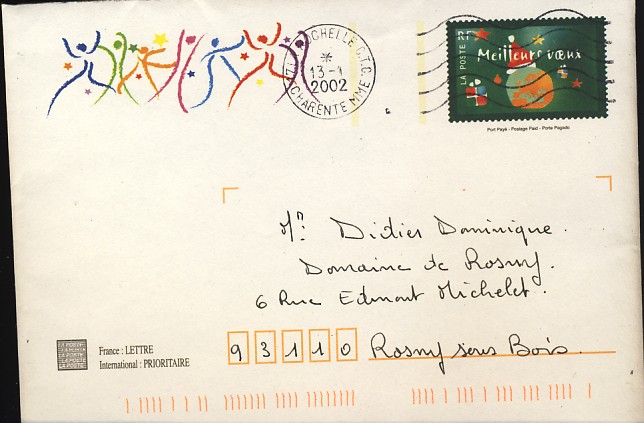 17 LA ROCHELLE C.T.C.
13-1
2002
CHARENTE MME
LA POSTE
Meilleurs vœux
Port Payé - Postage Paid - Porte Pagado
Mʳ. Didier Dominique.
Domaine de Rosny.
6 Rue Edmont Michelet.
93110 Rosny sous Bois.
France : LETTRE
International : PRIORITAIRE